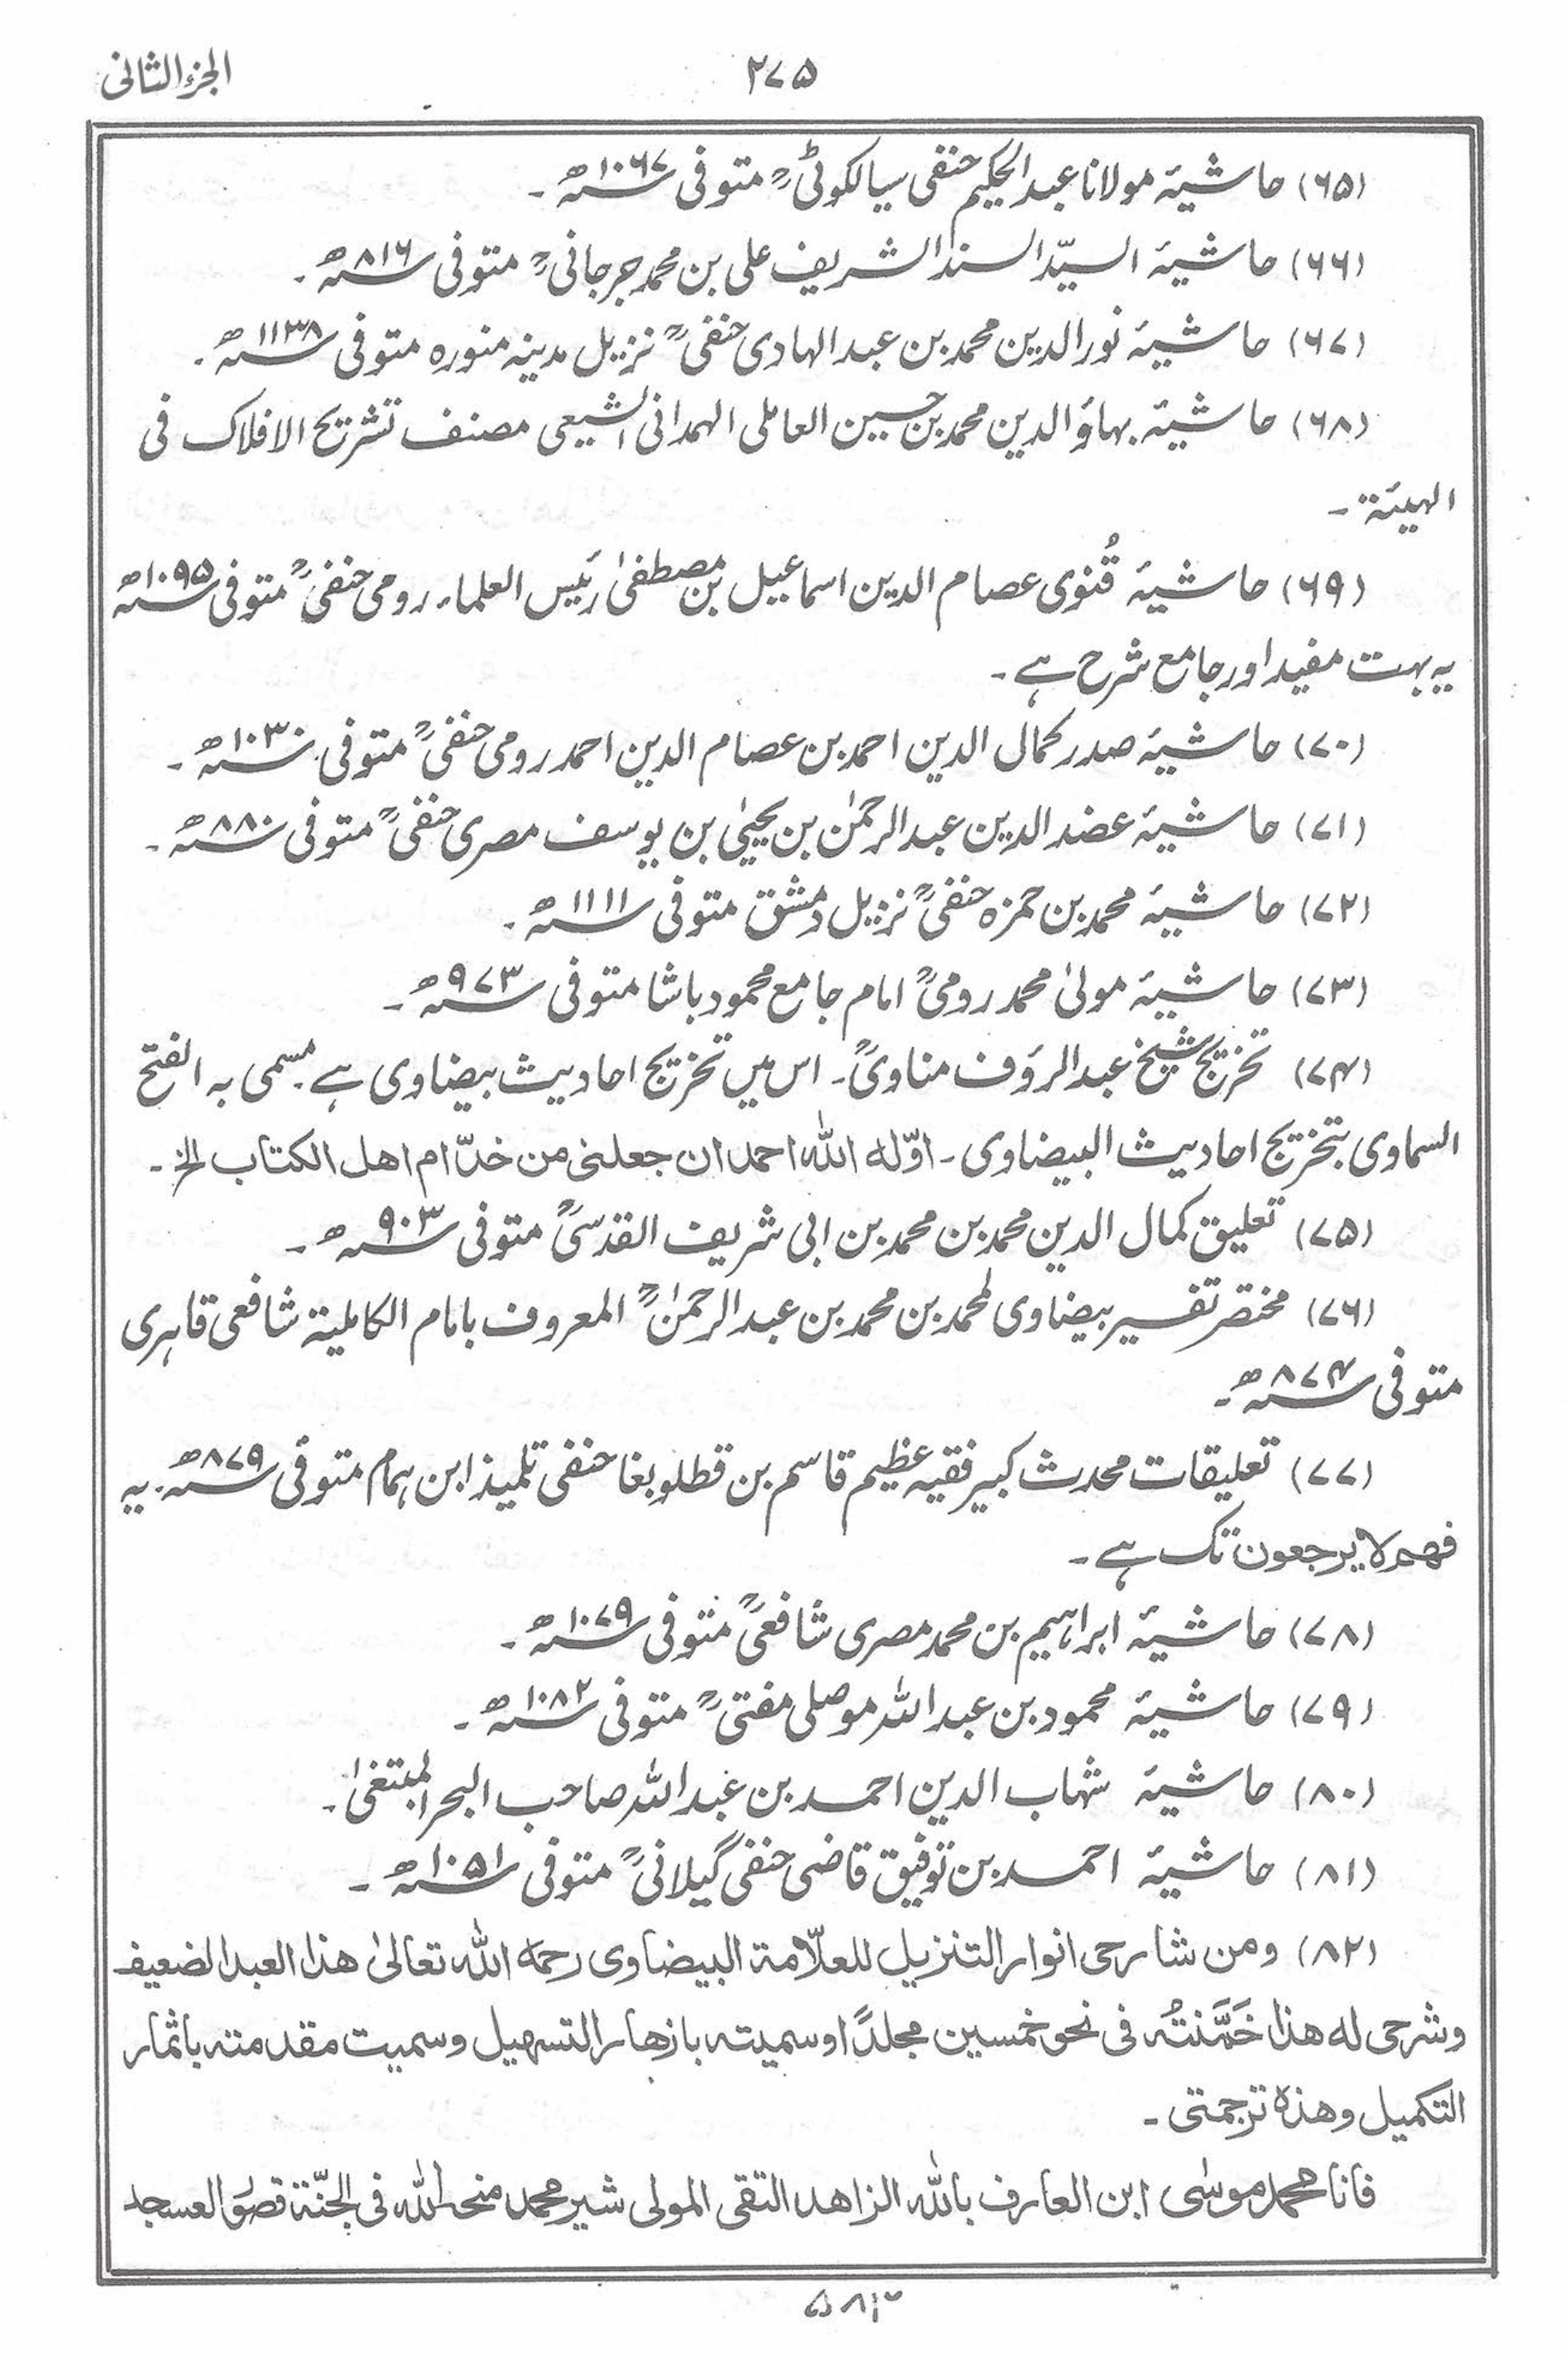 الجزء الثانی
۲۷۵
(۶۵) حاشیۂ مولانا عبدالحکیم حنفی سیالکوٹیؒ متوفی ۱۰۶۷ھ۔
(۶۶) حاشیۂ السیّد السند الشریف علی بن محمد جرجانیؒ متوفی ۸۱۶ھ۔
(۶۷) حاشیۂ نورالدین محمد بن عبدالهادی حنفیؒ نزیل مدینہ منورہ متوفی ۱۱۳۸ھ۔
(۶۸) حاشیۂ بہاؤ الدین محمد بن حسین العاملی الہمدانی الشیعی مصنف تشریح الافلاک فی
الہیئۃ۔
(۶۹) حاشیۂ قُنوی عصام الدین اسماعیل بن مصطفیٰ رئیس العلماء رومی حنفیؒ متوفی ۱۰۹۵ھ
یہ بہت مفید اور جامع شرح ہے۔
(۷۰) حاشیۂ صدر کمال الدین احمد بن عصام الدین احمد رومی حنفیؒ متوفی ۱۰۳۰ھ۔
(۷۱) حاشیۂ عضد الدین عبدالرحمٰن بن یحییٰ بن یوسف مصری حنفیؒ متوفی ۸۸۰ھ۔
(۷۲) حاشیۂ محمد بن حمزہ حنفیؒ نزیل دمشق متوفی ۱۱۱۱ھ۔
(۷۳) حاشیۂ مولیٰ محمد رومیؒ امام جامع محمود باشا متوفی ۹۷۳ھ۔
(۷۴) تخریج شیخ عبدالرؤف مناویؒ۔ اس میں تخریج احادیث بیضاوی ہے۔ مسمی بہ الفتح
السماوی بتخریج احادیث البیضاوی۔ اوّله اللّٰه احمد ان جعلنی من خدّام اهل الکتاب الخ۔
(۷۵) تعلیق کمال الدین محمد بن محمد بن ابی شریف القدسیؒ متوفی ۹۰۳ھ۔
(۷۶) مختصر تفسیر بیضاوی لمحمد بن محمد بن عبدالرحمٰنؒ المعروف بامام الکاملیۃ شافعی قاہری
متوفی ۸۷۴ھ۔
(۷۷) تعلیقات محدث کبیر فقیہ عظیم قاسم بن قطلوبغا حنفی تلمیذ ابن ہمام متوفی ۸۷۹ھ۔ یہ
فهم لا یرجعون تک ہے۔
(۷۸) حاشیۂ ابراہیم بن محمد مصری شافعیؒ متوفی ۱۰۷۹ھ۔
(۷۹) حاشیۂ محمود بن عبداللہ موصلی مفتیؒ متوفی ۱۰۸۲ھ۔
(۸۰) حاشیۂ شہاب الدین احمد بن عبداللہ صاحب البحر المبتغیٰ۔
(۸۱) حاشیۂ احمد بن توفیق قاضی حنفی گیلانیؒ متوفی ۱۰۵۱ھ۔
(۸۲) ومن شارحی انوار التنزیل للعلّامة البیضاوی رحمه اللّٰه تعالیٰ هذا العبد الضعیف
وشرحی له هذا خَمَّنتُه فی نحو خمسین مجلدًا وسمیته بازهار التسهیل وسمیت مقدمته باثمار
التکمیل وهذه ترجمتی۔
فانا محمد موسٰی ابن العارف باللّٰه الزاهد التقی المولی شیر محمد منحه اللّٰه فی الجنّة قصور العسجد
۵۸۱۲